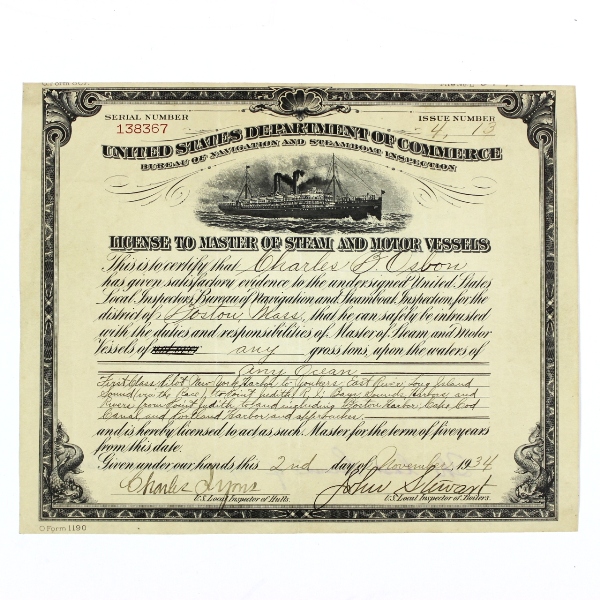 SERIAL NUMBER
138367
ISSUE NUMBER
4, 13
UNITED STATES DEPARTMENT OF COMMERCE
BUREAU OF NAVIGATION AND STEAMBOAT INSPECTION
LICENSE TO MASTER OF STEAM AND MOTOR VESSELS
This is to certify that Charles B. Osbon
has given satisfactory evidence to the undersigned United States
Local Inspectors, Bureau of Navigation and Steamboat Inspection, for the
district of Boston Mass, that he can safely be intrusted
with the duties and responsibilities of Master of Steam and Motor
Vessels of any gross tons, upon the waters of
Any Ocean
First Class Pilot New York Harbor to Yonkers, East River, Long Island
Sound (via the Race), to Point Judith R. I. Bays, Sounds, Harbors and
Rivers from Point Judith to and including Boston Harbor, Cape Cod
Canal and Portland Harbor and approaches.
and is hereby licensed to act as such Master for the term of five years
from this date.
Given under our hands this 2nd day of November, 1934
Charles Lyons
John Stewart
U.S. Local Inspector of Hulls.
U.S. Local Inspector of Boilers.
Form 1190